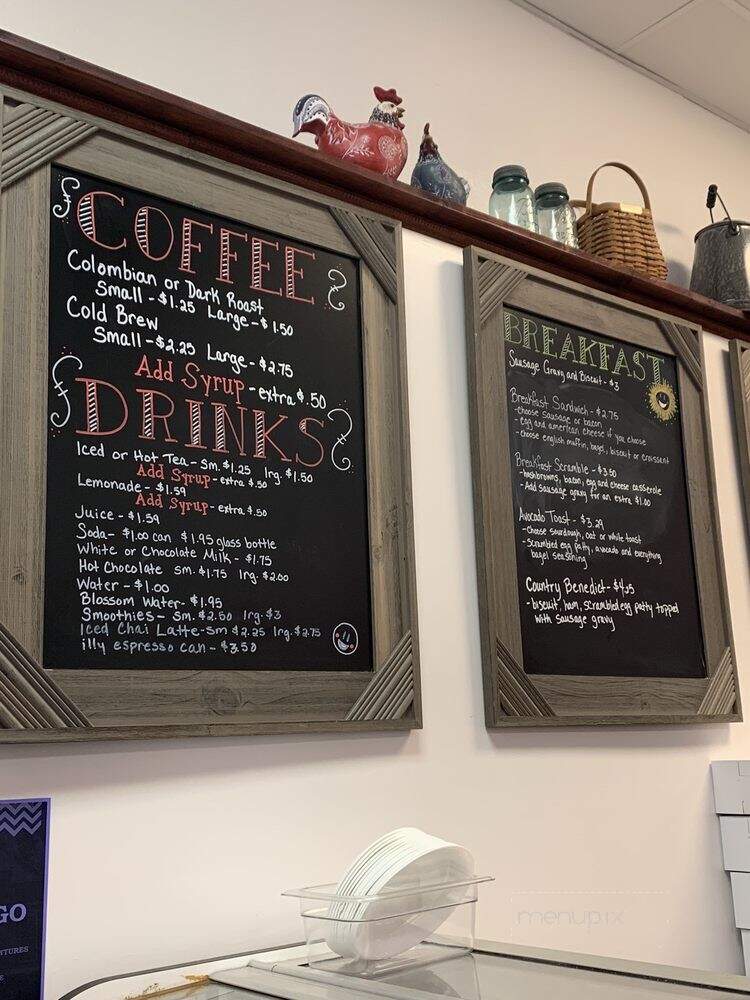 COFFEE
Colombian or Dark Roast
Small - $1.25 Large - $1.50
Cold Brew
Small - $2.25 Large - $2.75
Add Syrup - extra $.50
DRINKS
Iced or Hot Tea - sm. $1.25 lrg. $1.50
Add Syrup - extra $.50
Lemonade - $1.59
Add Syrup - extra $.50
Juice - $1.59
Soda - $1.00 can $1.95 glass bottle
White or Chocolate Milk - $1.75
Hot Chocolate sm. $1.75 lrg. $2.00
Water - $1.00
Blossom Water - $1.95
Smoothies - sm. $2.50 lrg - $3
Iced Chai Latte - sm $2.25 lrg. $2.75
illy espresso can - $3.50
BREAKFAST
Sausage Gravy and Biscuit - $3
Breakfast Sandwich - $2.75
- choose sausage or bacon
- egg and american cheese if you choose
- choose english muffin, bagel, biscuit or croissant
Breakfast Scramble - $3.50
- hashbrowns, bacon, egg and cheese casserole
- Add sausage gravy for an extra $1.00
Avocado Toast - $3.29
- choose sourdough, oat or white toast
- scrambled egg patty, avocado and everything
bagel seasoning
Country Benedict - $4.25
- biscuit, ham, scrambled egg patty topped
with sausage gravy
GO
menupix